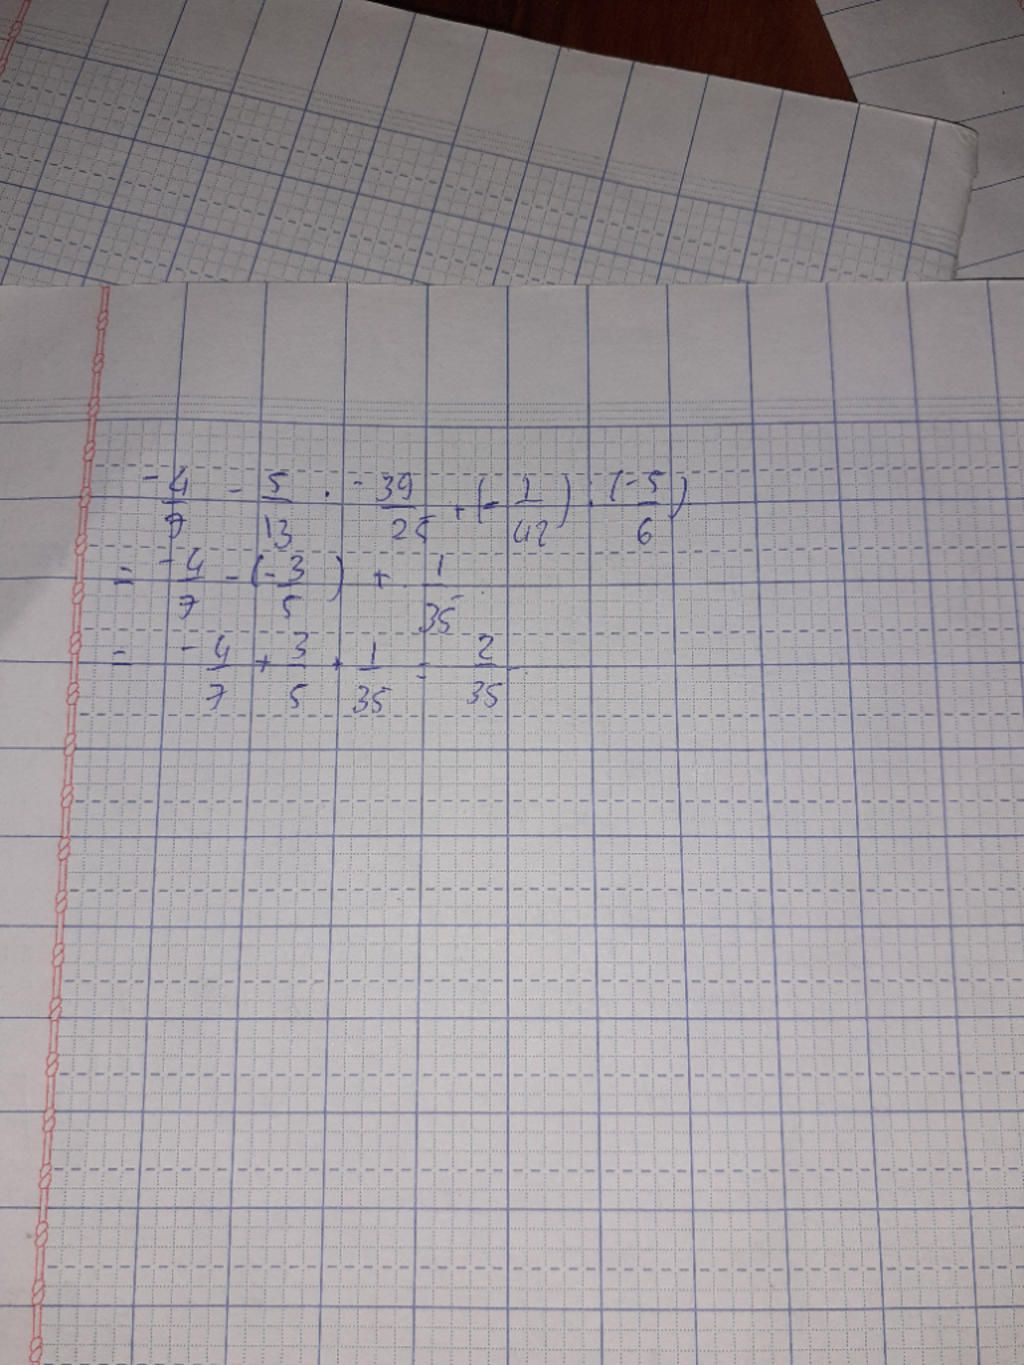 -4/7 - 5/13 . -39/25 + (-1/42) : (-5/6)
= -4/7 - (-3/5) + 1/35
= -4/7 + 3/5 + 1/35 = 2/35